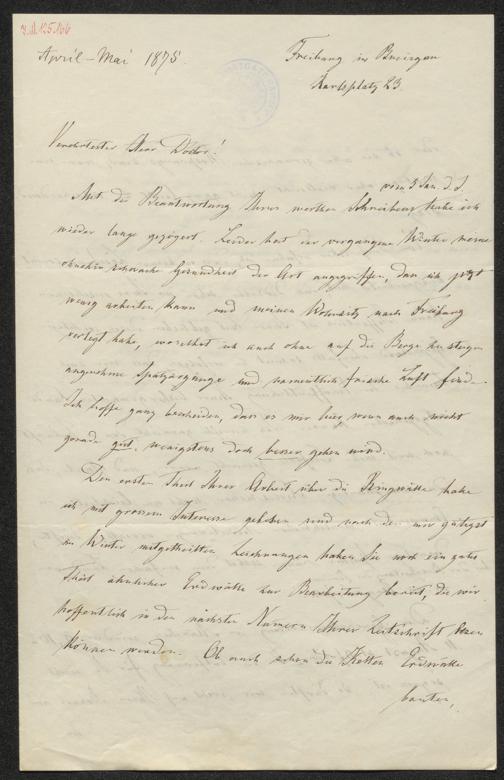 April-Mai 1875.
Freiburg in Breisgau
Karlsplatz 23.
Verehrtester Herr Doctor!
vom 5 Jan. d. J.
Mit der Beantwortung Ihres werthen Schreibens habe ich
wieder lange gezögert. Leider hat der vergangene Winter meine
ohnehin schwache Gesundheit der Art angegriffen, dass ich jetzt
wenig arbeiten kann und meinen Wohnsitz nach Freiburg
verlegt habe, woselbst ich auch ohne auf die Berge zu steigen
angenehme Spatziergänge und namentlich frische Luft finde.
Ich hoffe ganz bescheiden, dass es mir hier, wenn auch nicht
gerade gut, wenigstens doch besser gehen wird.
Den ersten Theil Ihrer Arbeit über die Ringwälle habe
ich mit grossem Interesse gelesen und nach den mir gütigst
im Winter mitgetheilten Zeichnungen haben Sie noch ein gutes
Theil ähnlicher Erdwälle zur Bearbeitung bereit, die wir
hoffentlich in den nächsten Numern Ihrer Zeitschrift lesen
können werden. Ob auch schon die Kelten Erdwälle
bauten,